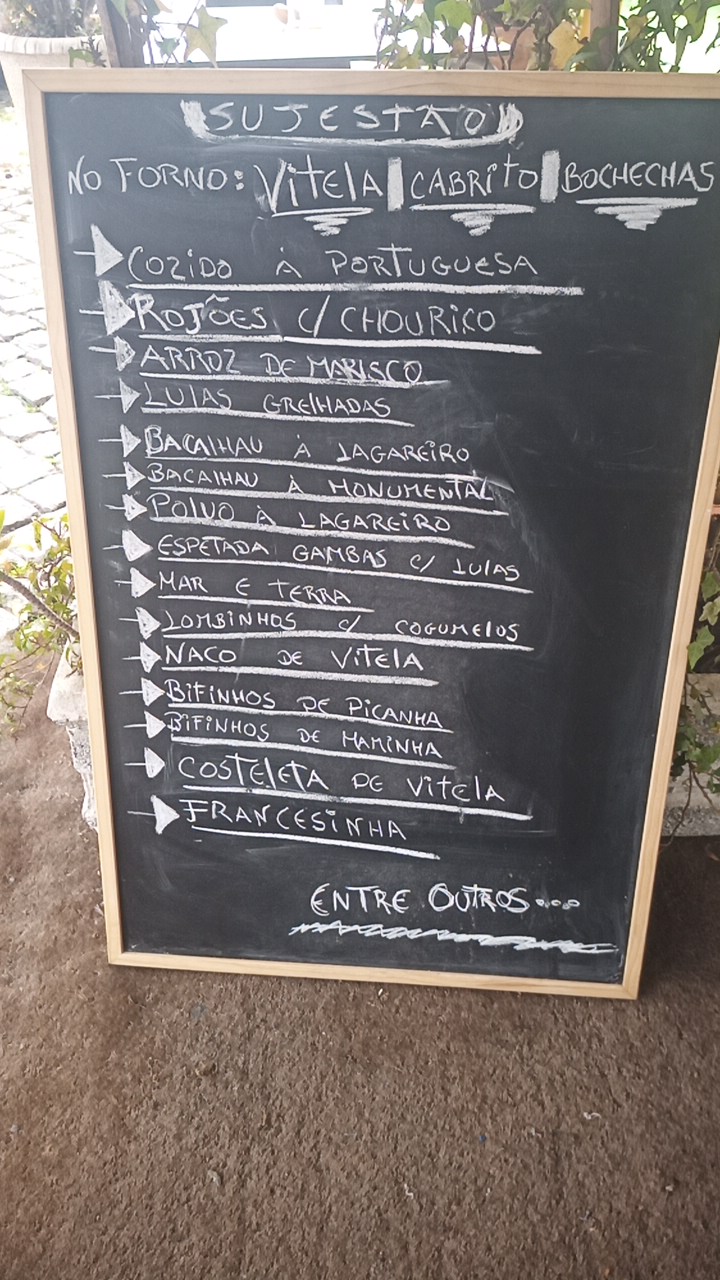 SUJESTÃO
NO FORNO: VITELA | CABRITO | BOCHECHAS
COZIDO À PORTUGUESA
ROJÕES C/ CHOURICO
ARROZ DE MARISCO
LULAS GRELHADAS
BACALHAU À LAGAREIRO
BACALHAU À MONUMENTAL
POLVO À LAGAREIRO
ESPETADA GAMBAS C/ LULAS
MAR E TERRA
LOMBINHOS C/ COGUMELOS
NACO DE VITELA
BIFINHOS DE PICANHA
BIFINHOS DE MAMINHA
COSTELETA DE VITELA
FRANCESINHA
ENTRE OUTROS...